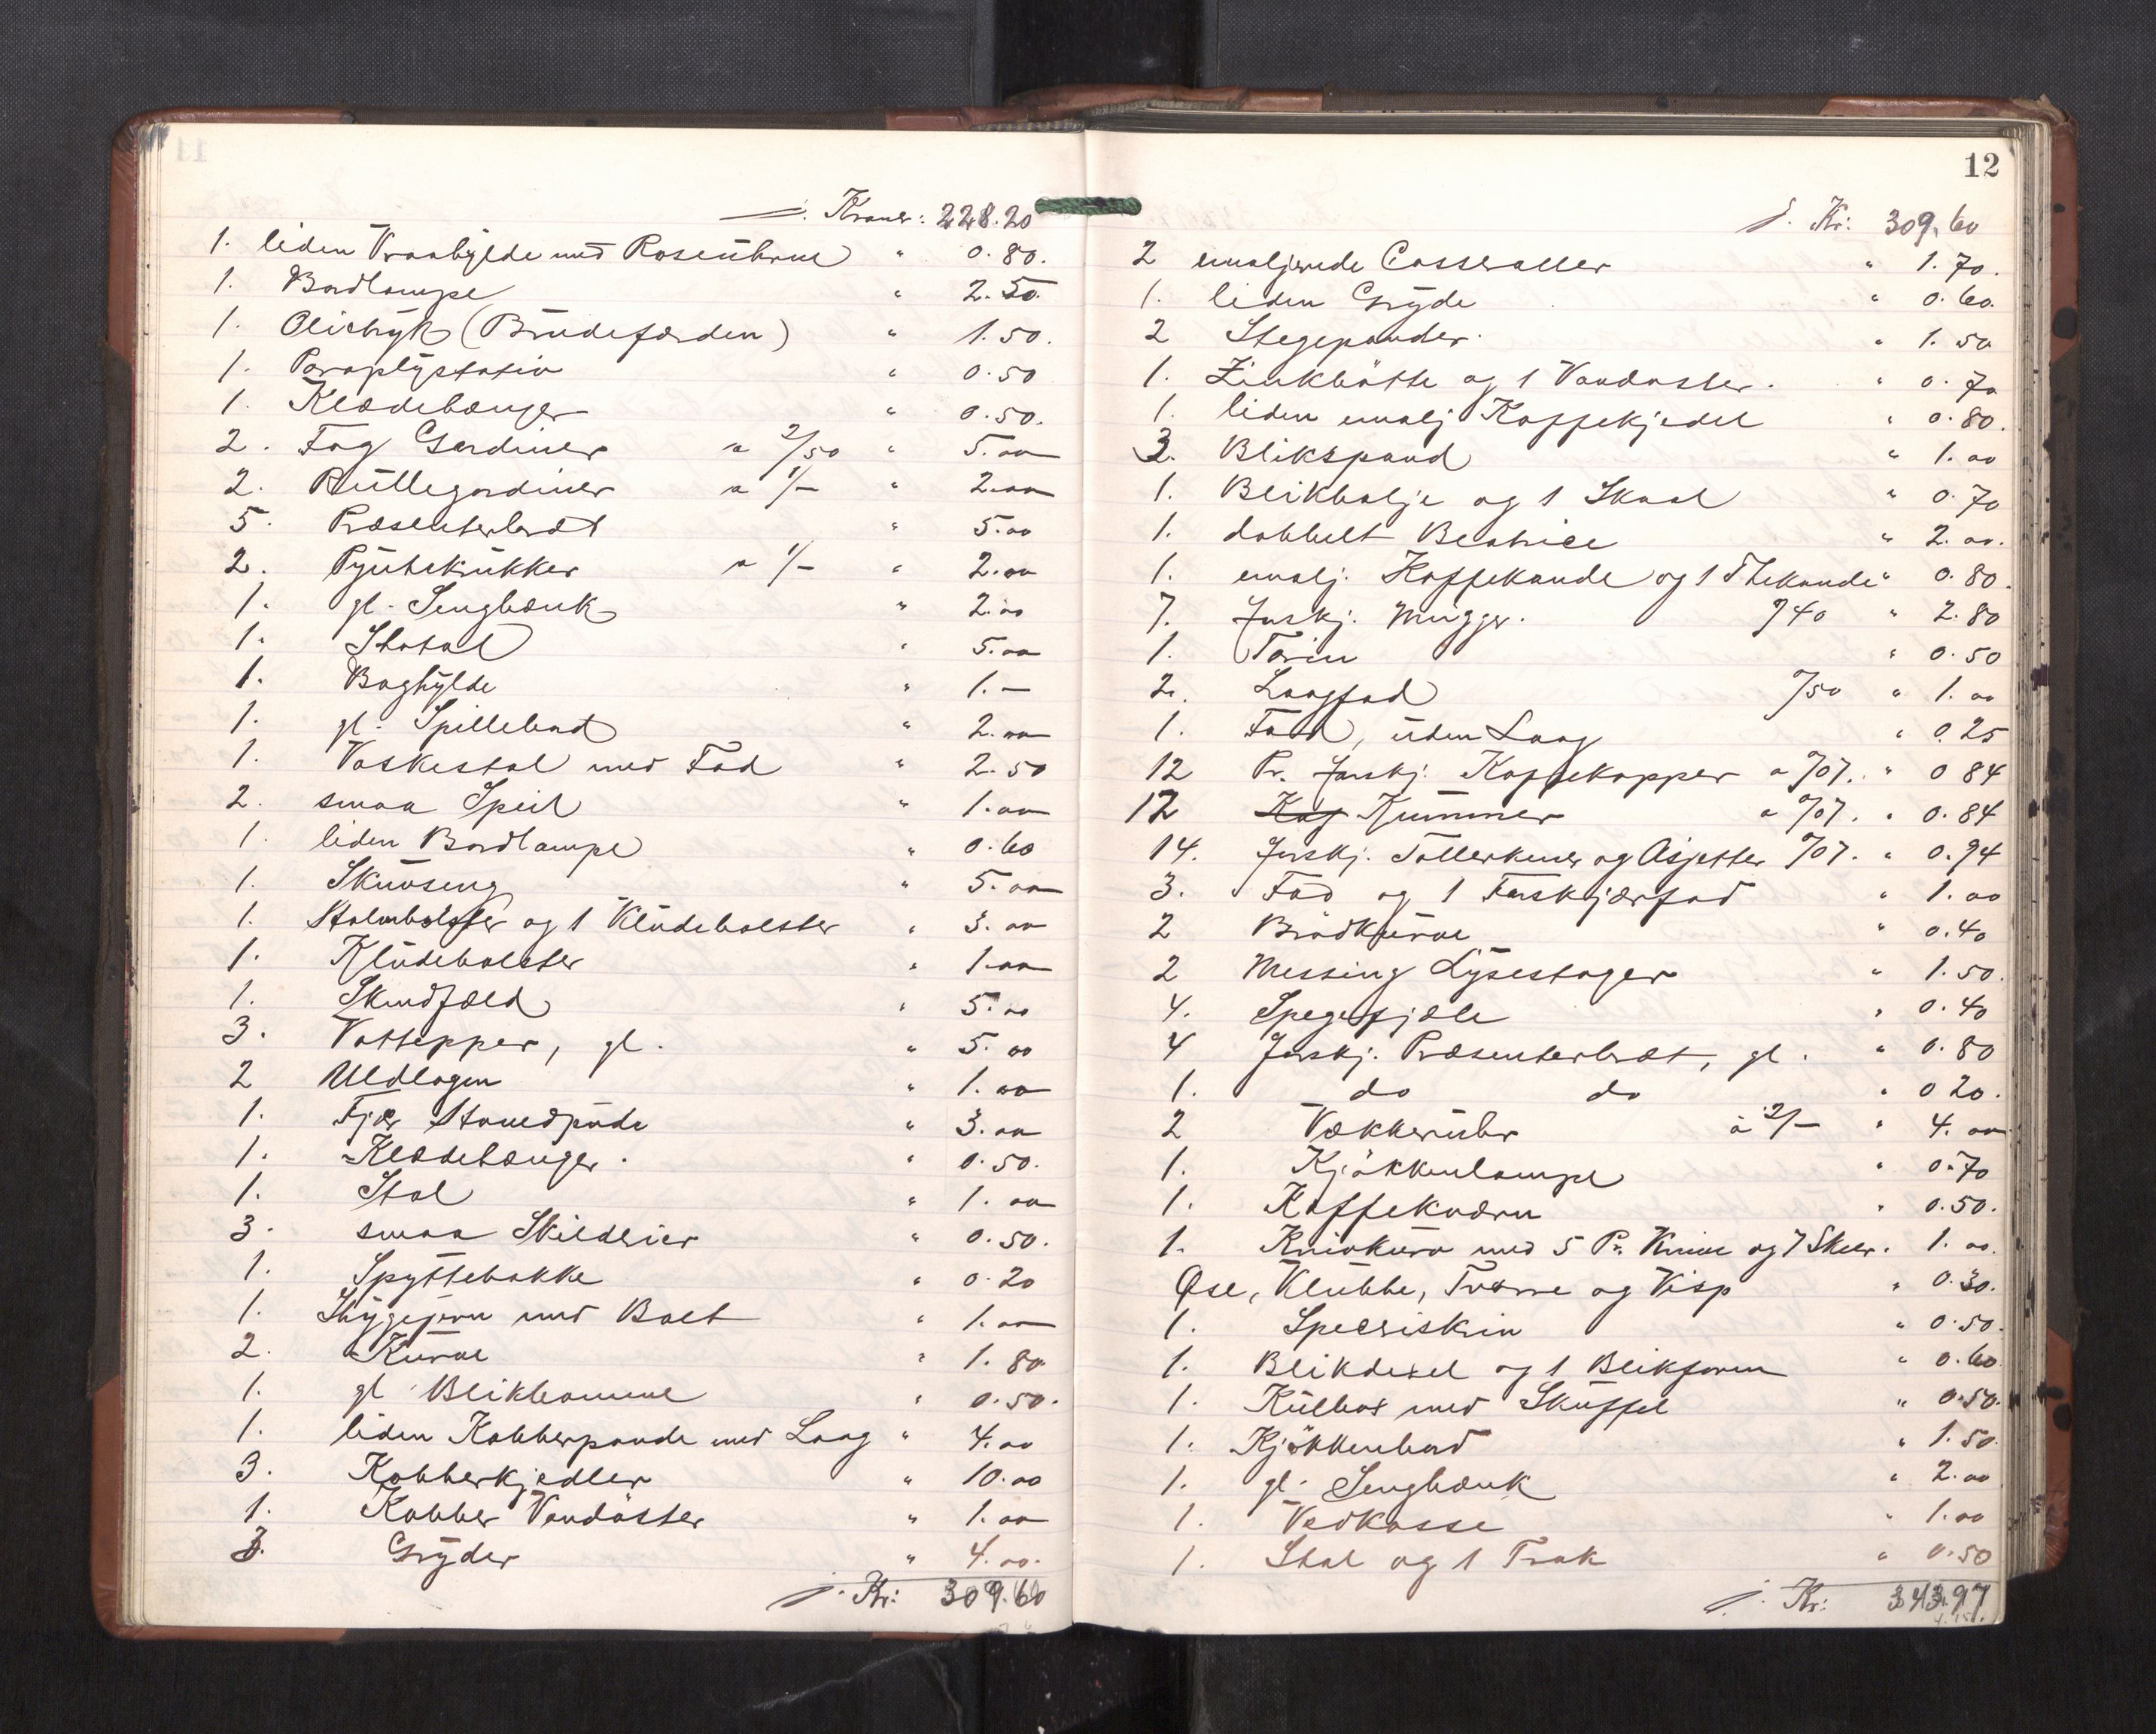 Kroner: 228.20
1. liden Vraahylde med Rosenkrone " 0.80.
1. Bordlampe " 2.50.
1. Olietryk (Brudefærden) " 1.50.
1. Paraplystativ " 0.50
1. Klædehænger " 0.50.
2. Fag Gardiner a 2/50 " 5.00
2. Rullegardiner a 1/- " 2.00
5. Præsenterbræt " 5.00
2. Pyntekrukker a 1/- " 2.00
1. gl. Sengbænk " 2.00
1. Skatol " 5.00
1. Boghylde " 1.-
1. gl. Spillebord " 2.00
1. Vaskestol med Fad " 2.50
2. smaa Speil " 1.00
1. liden Bordlampe " 0.60
1. Skuvseng " 5.00
1. Halmbolster og 1 Kludebolster " 3.00
1. Kludebolster " 1.00
1. Skindfæld " 5.00
3. Vattepper, gl. " 5.00
2 Uldlagen " 1.00
1. Fjær Hovedpude " 3.00
1. Klædehænger. " 0.50.
1. Stol " 1.00
3. smaa Skilderier " 0.50.
1. Spyttebakke " 0.20
1. Strygejern med Bolt " 1.00
2. Kurve " 1.80
1. gl Blikkomme " 0.50.
1. liden Kobberpande med Laag " 4.00
3. Kobberkjedler " 10.00
1. Kobber Vandöster " 1.00
3. Gryder " 4.00.
Kr: 309.60
12
Kr: 309.60
2 emaljerede Casseroller " 1.70.
1. liden Gryde " 0.60.
2 Stegepander. " 1.50
1. Zinkbötte og 1 Vandöster. " 0.70
1. liden emalj Kaffekjedel " 0.80.
3. Blikspand " 1.00
1. Blikbalje og 1 Skaal " 0.70
1. dobbelt Beatrice " 2.00.
1. emalj. Kaffekande og 1 Thekande " 0.80.
7. forskj. Mugger. 0/40 " 2.80
1. Terin " 0.50
2. Laagfad 0/50 " 1.00
1. Fad, uden Laag " 0.25
12 Pr. forskj. Kaffekopper a 0/07. " 0 84
12 Kummer a 0/07. " 0.84
14. forskj. Tallerkener og Asjetter 0/07. " 0.94
3. Fad og 1 Forskjærfad " 1.00
2 Brödkurve " 0.40
2 Messing Lysestager " 1.50.
4. Spegefjæle " 0.40
4 forskj. Præsenterbræt, gl. " 0.80
1. do do " 0 20.
2 Vækkeruhr à 2/- " 4.00
1. Kjökkenlampe " 0.70
1. Kaffekværn " 0.50.
1. Knivkurv med 5 Pr. Knive og 7 Skeer. 1.00.
Øse, Klubbe, Tvære og Visp " 0.30.
1. Specriskrin " 0.50.
1. Blikdexel og 1 Blikform " 0.60
1. Kulbox med Skuffel " 0.50.
1. Kjökkenbord " 1.50.
1. gl. Sengbænk " 2.00
1. Vedkasse " 1.00
1. Stol og 1 Trak " 0.50
Kr: 343.97